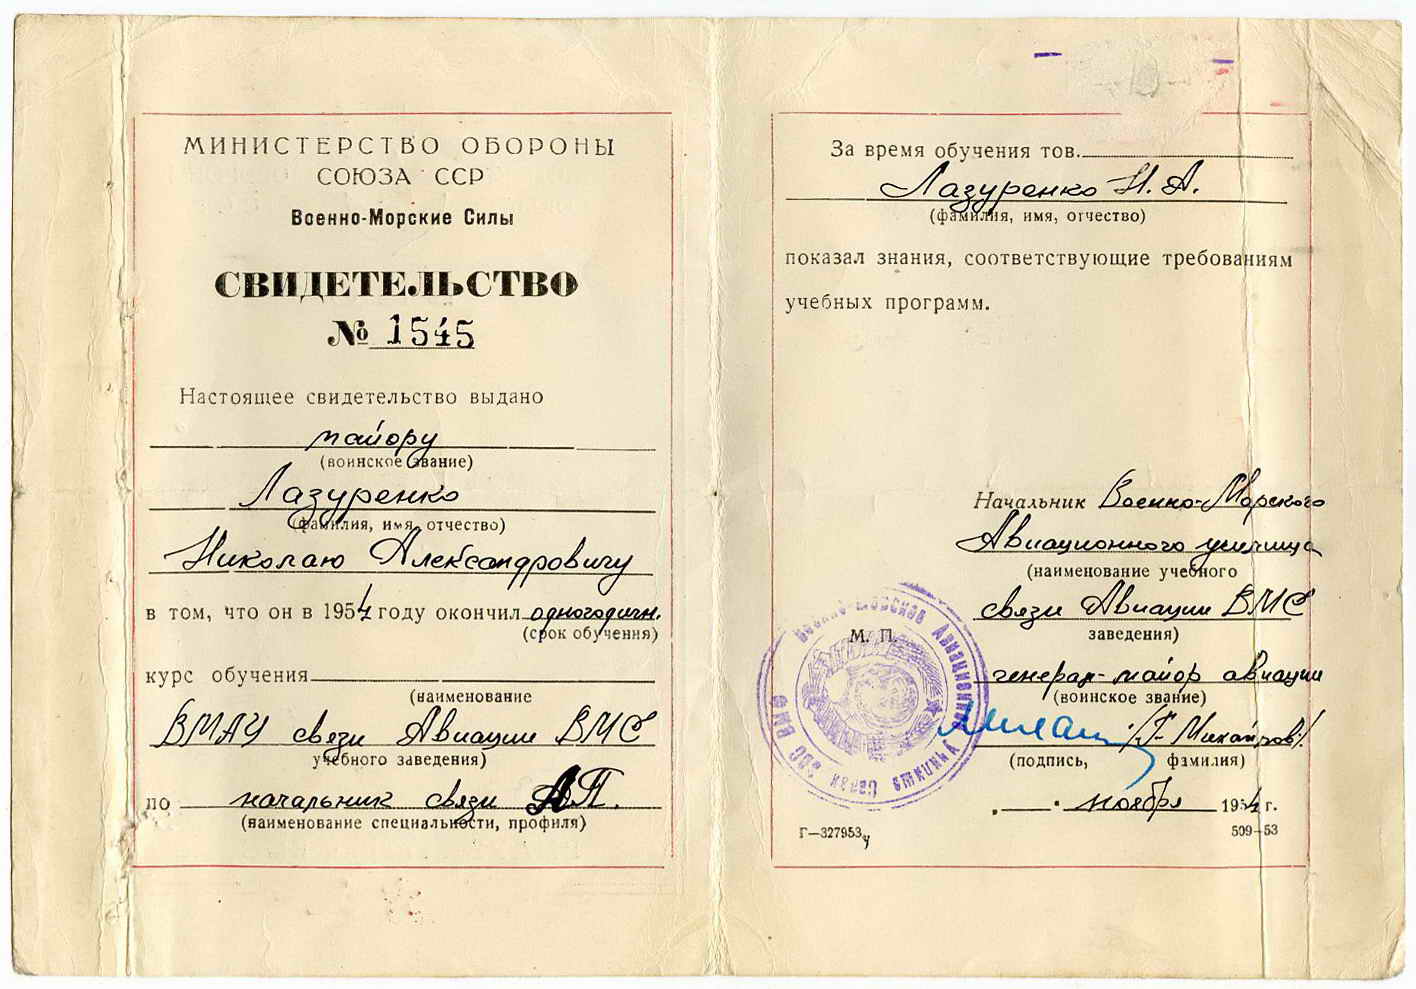 МИНИСТЕРСТВО ОБОРОНЫ
СОЮЗА ССР
Военно-Морские Силы
СВИДЕТЕЛЬСТВО
№ 1545
Настоящее свидетельство выдано
майору
(воинское звание)
Лазуренко
(фамилия, имя, отчество)
Николаю Александровичу
в том, что он в 1954 году окончил одногодичн.
(срок обучения)
курс обучения
(наименование
ВМАУ связи Авиации ВМС
учебного заведения)
по начальник связи АП.
(наименование специальности, профиля)
За время обучения тов.
Лазуренко Н. А.
(фамилия, имя, отчество)
показал знания, соответствующие требованиям
учебных программ.
Начальник Военно-Морского
Авиационного училища
(наименование учебного
связи Авиации ВМС
заведения)
М. П.
генерал-майор авиации
(воинское звание)
(подпись, фамилия)
ноября 1954 г.
Г—327953
509—53
Военно-Морское Авиационное Училище Связи